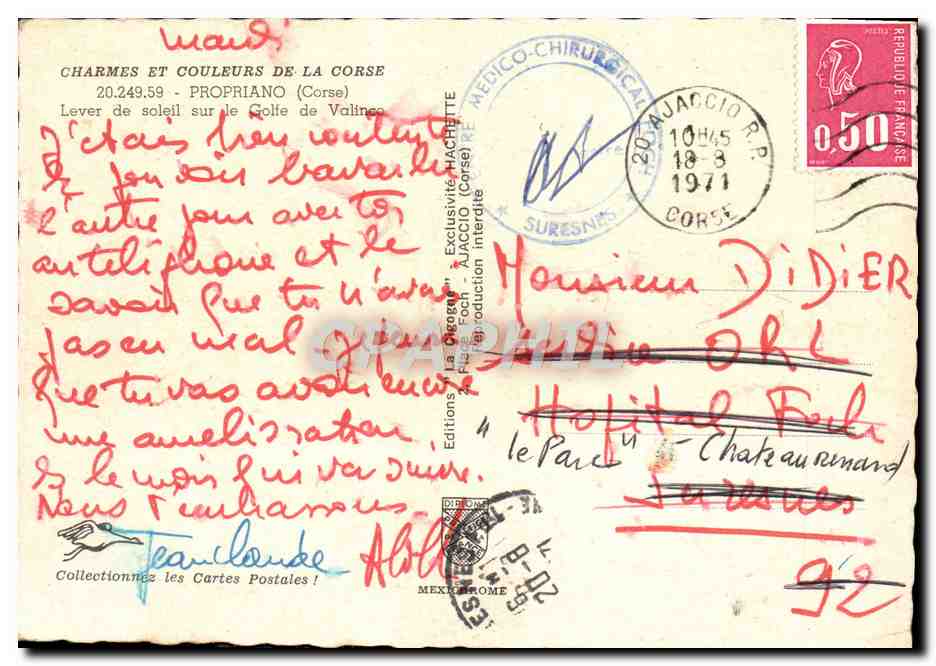 Mardi
CHARMES ET COULEURS DE LA CORSE
20.249.59 - PROPRIANO (Corse)
Lever de soleil sur le Golfe de Valinco
J'étais bien contente
de pouvoir bavarder
l'autre jour avec toi
au téléphone et de
savoir que tu n'avais
pas eu mal
que tu vas avoir encore
une amélioration
le mois qui va suivre.
Nous t'embrassons
Jean Claude
Collectionnez les Cartes Postales !
Editions "La Cigogne" Exclusivité HACHETTE
2, Place Foch - AJACCIO (Corse)
Reproduction interdite
MEXICHROME
MEDICO-CHIRURGICAL
SURESNES
20 AJACCIO R.P.
10H45
18-8
1971
CORSE
REPUBLIQUE FRANÇAISE
0,50
Monsieur DIDIER
ORL
Hopital Foch
"le Parc" - Chateaurenard
Suresnes
92
CPARAMA